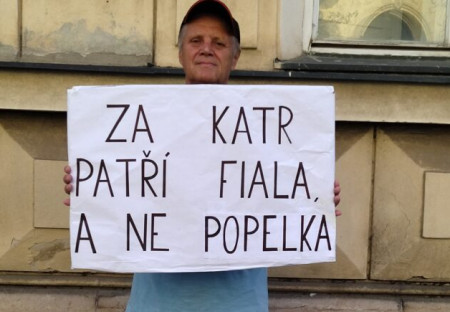 ZA KATR
PATŘÍ FIALA,
A NE POPELKA